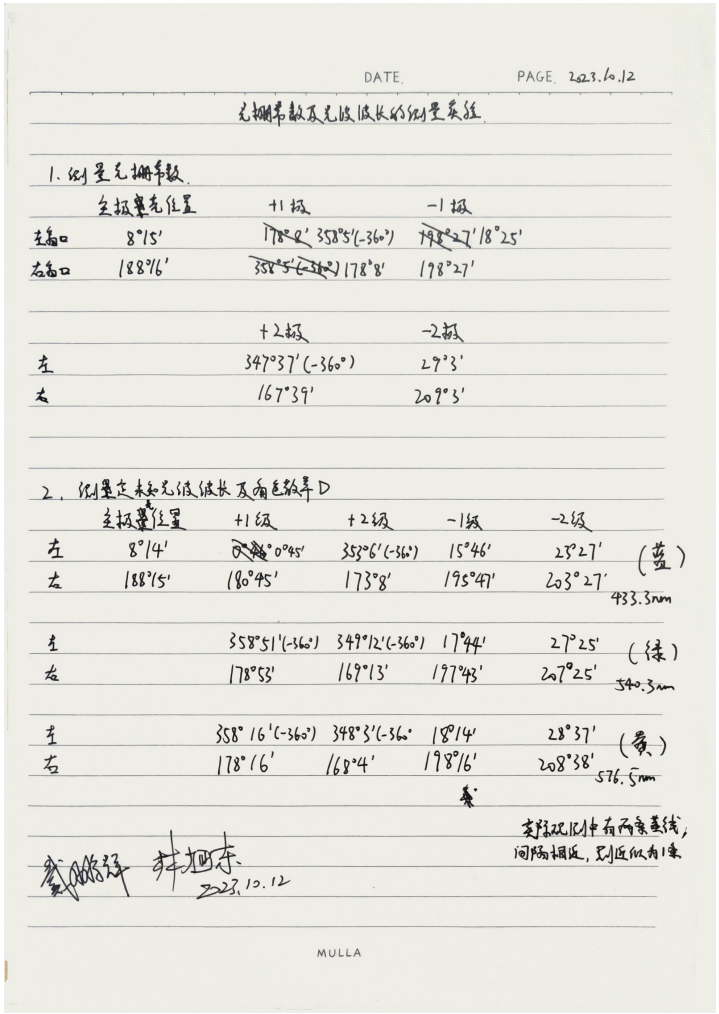 DATE.
PAGE. 2023.10.12
光栅常数及光波波长的测量实验.
1. 测量光栅常数.
主极亮位置 +1极 -1极
左窗口 8°15′ 178°8′ 358°5′(-360°) 198°27′ 18°25′
右窗口 188°16′ 358°5′(-360°) 178°8′ 198°27′
+2极 -2极
左 347°37′(-360°) 29°3′
右 167°39′ 209°3′
2. 测量定未知光波波长及角色散率D
主极亮位置 +1级 +2级 -1级 -2级
左 8°14′ 0°45′ 353°6′(-360°) 15°46′ 23°27′ (蓝)
右 188°15′ 180°45′ 173°8′ 195°47′ 203°27′
433.3nm
左 358°51′(-360°) 349°12′(-360°) 17°44′ 27°25′ (绿)
右 178°53′ 169°13′ 197°43′ 207°25′
540.3nm
左 358°16′(-360°) 348°3′(-360° 18°14′ 28°37′ (黄)
右 178°16′ 168°4′ 198°16′ 208°38′
576.5nm
实际观测中有两条黄线,
间隔相近, 则近似为1条
2023.10.12
MULLA